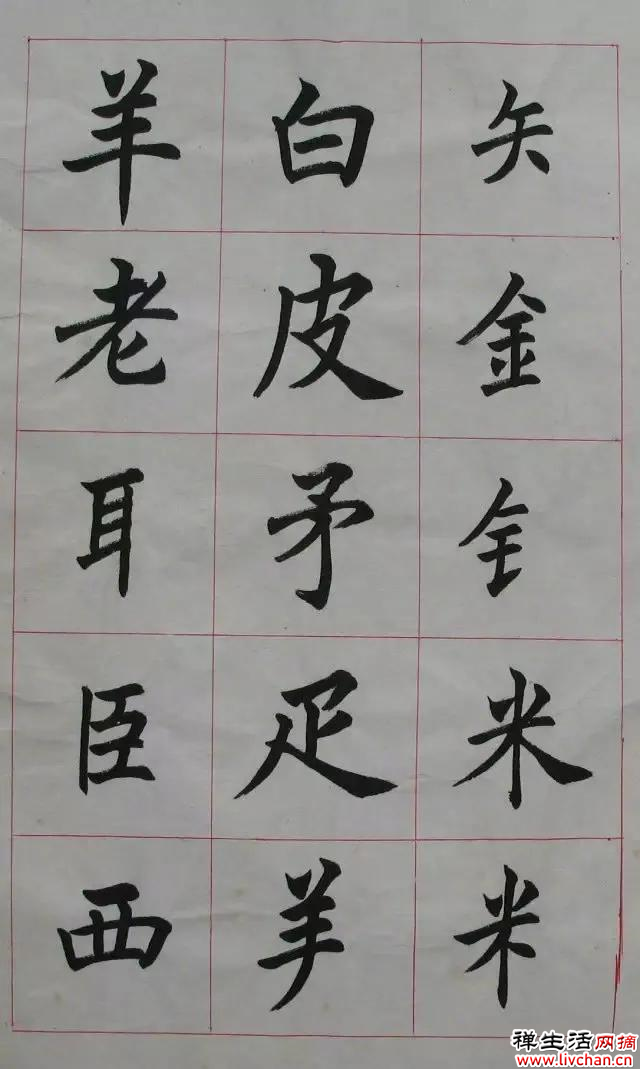 矢金釒米米
白皮矛疋⺶
羊老耳臣西
禅生活网摘
www.livchan.com